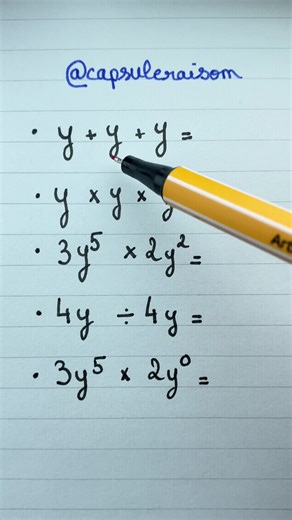 @capsuleraisom
• y + y + y =
• y × y × y
• 3y⁵ × 2y² =
• 4y ÷ 4y =
• 3y⁵ × 2y⁰ =
Art